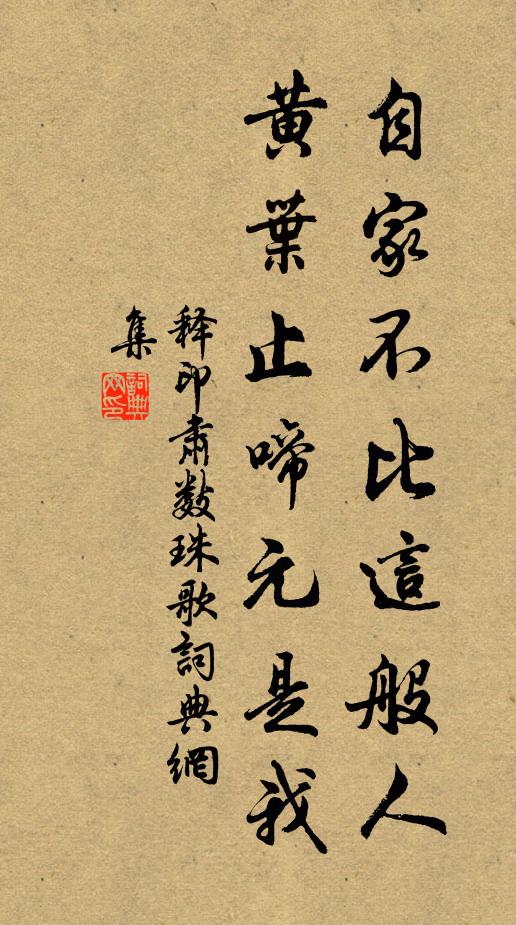 自家不比這般人
黃葉止啼元是我
释印肅數珠歌詞典網
集
詞典網印